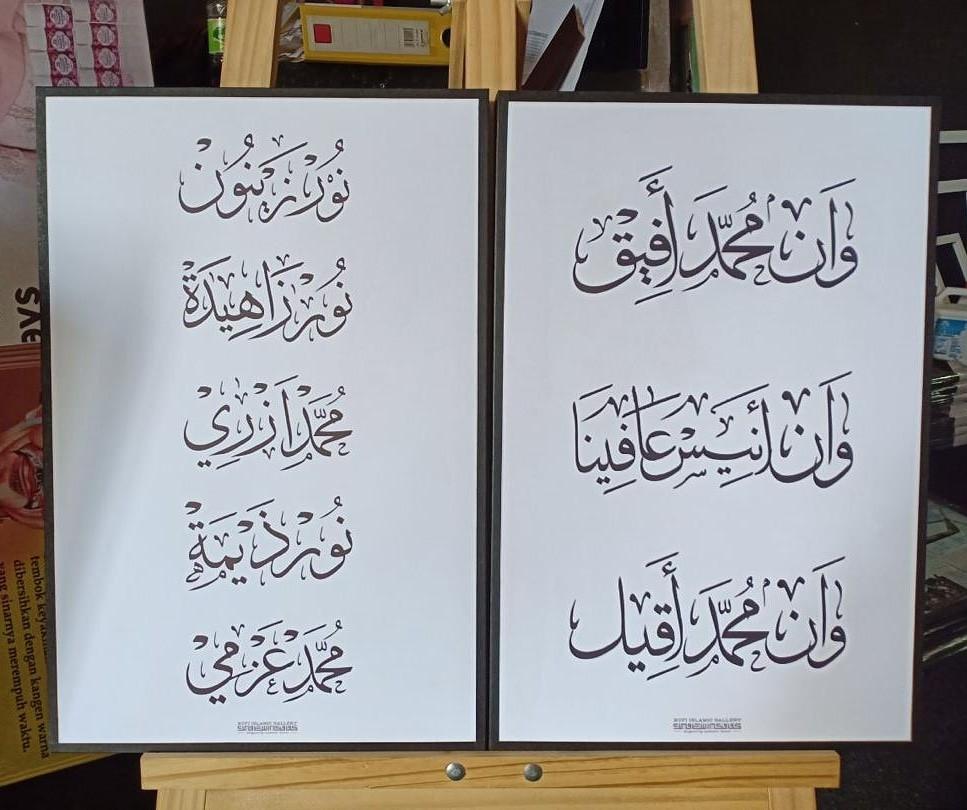 نُور زَيْنُون
نُور زَاهِيدَة
مُحَمَّد ازْرِي
نُور ذَيمَة
مُحَمَّد عَزْمِي
وَان مُحَمَّد أَفِيق
وَان أَنِيس عَافِينَا
وَان مُحَمَّد أَقِيل
SUFI ISLAMIC GALLERY
tembok keya
dibersihkan dengan kangen warna
yang sinarnya merempuh waktu.